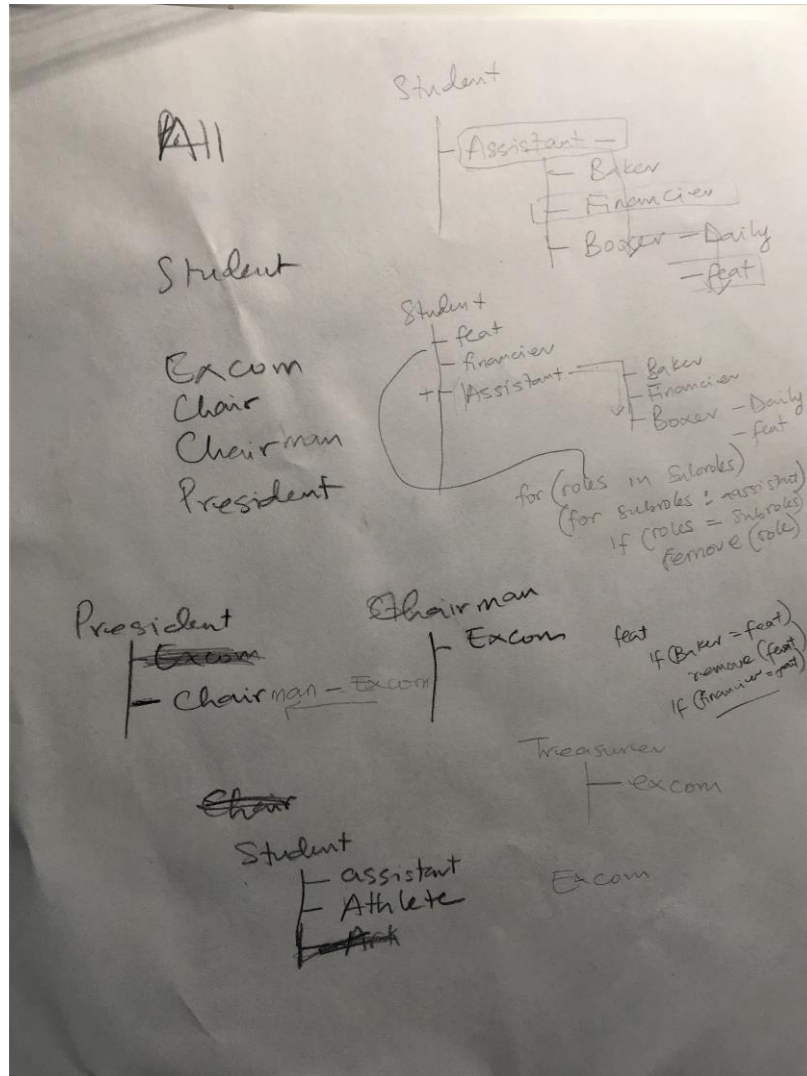 All
Student
Excom
Chair
Chairman
President
Student
Assistant
Baker
Financier
Boxer - Daily
- feat
Student
feat
financier
+ Assistant
Baker
Financier
Boxer - Daily
- feat
for (roles in subroles)
(for subroles : assistant)
if (roles = subroles)
remove (role)
President
Excom
Chairman - Excom
Chairman
Excom
feat
if (Baker = feat)
remove (feat)
if (financier = feat)
Treasurer
excom
Chair
Student
assistant
Athlete
Excom